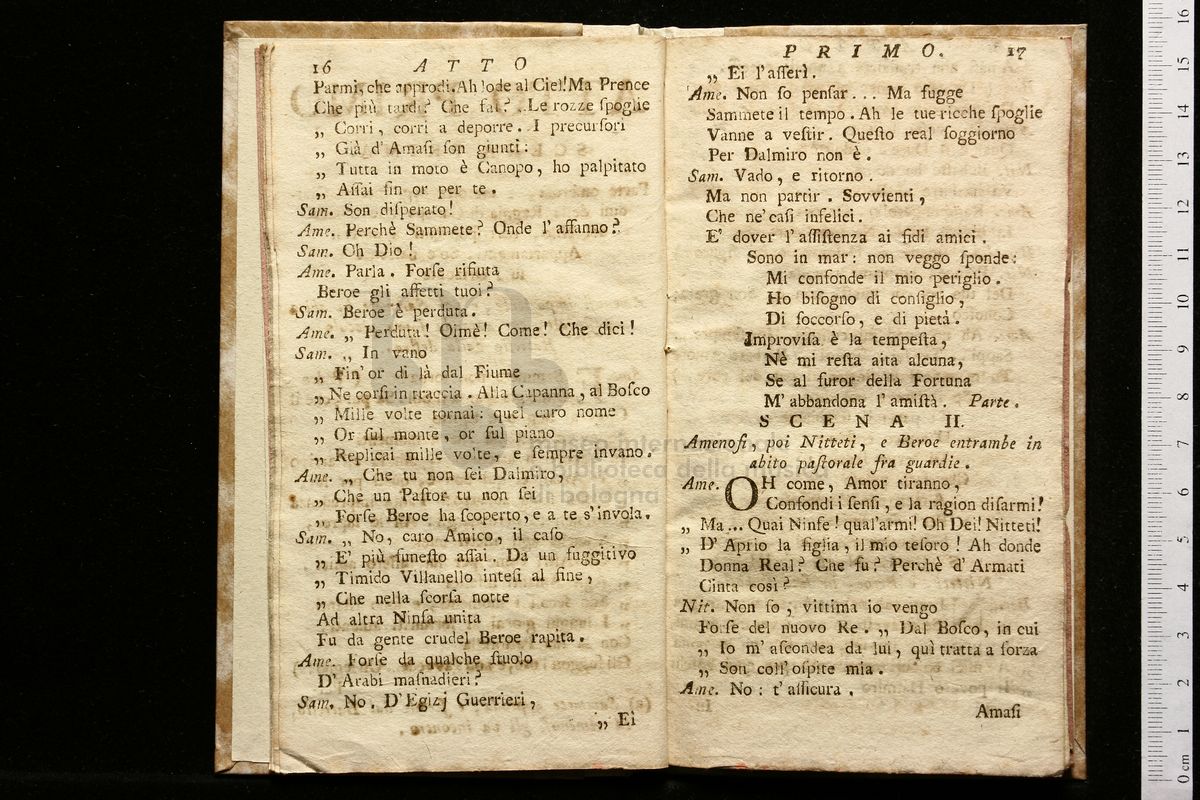 16 ATTO
Parmi, che approdi. Ah lode al Ciel! Ma Prence
Che più tardi? Che fai? .. Le rozze ſpoglie
„ Corri, corri a deporre. I precurſori
„ Già d' Amaſi ſon giunti:
„ Tutta in moto è Canopo, ho palpitato
„ Aſſai fin or per te.
Sam. Son diſperato!
Ame. Perchè Sammete? Onde l' affanno?
Sam. Oh Dio!
Ame. Parla. Forſe rifiuta
Beroe gli affetti tuoi?
Sam. Beroe è perduta.
Ame. „ Perduta! Oimè! Come! Che dici!
Sam. „ In vano
„ Fin' or di là dal Fiume
„ Ne corſi in traccia. Alla Capanna, al Boſco
„ Mille volte tornai: quel caro nome
„ Or ſul monte, or ſul piano
„ Replicai mille volte, e ſempre invano.
Ame. „ Che tu non ſei Dalmiro,
„ Che un Paſtor tu non ſei
„ Forſe Beroe ha ſcoperto, e a te s' invola.
Sam. „ No, caro Amico, il caſo
„ E' più funeſto aſſai. Da un fuggitivo
„ Timido Villanello inteſi al fine,
„ Che nella ſcorſa notte
Ad altra Ninfa unita
Fu da gente crudel Beroe rapita.
Ame. Forſe da qualche ſtuolo
D' Arabi maſnadieri?
Sam. No. D' Egizj Guerrieri,
„ Ei
PRIMO. 17
„ Ei l' aſſerì.
Ame. Non ſo penſar... Ma fugge
Sammete il tempo. Ah le tue ricche ſpoglie
Vanne a veſtir. Queſto real ſoggiorno
Per Dalmiro non è.
Sam. Vado, e ritorno.
Ma non partir. Sovvienti,
Che ne' caſi infelici.
E' dover l' aſſiſtenza ai fidi amici.
Sono in mar: non veggo ſponde:
Mi confonde il mio periglio.
Ho biſogno di conſiglio,
Di ſoccorſo, e di pietà.
Improviſa è la tempeſta,
Nè mi reſta aita alcuna,
Se al furor della Fortuna
M' abbandona l' amiſtà. Parte.
SCENA II.
Amenoſi, poi Nitteti, e Beroe entrambe in
abito paſtorale fra guardie.
Ame. OH come, Amor tiranno,
Confondi i ſenſi, e la ragion diſarmi!
„ Ma... Quai Ninfe! qual' armi! Oh Dei! Nitteti!
„ D' Aprio la figlia, il mio teſoro! Ah donde
Donna Real? Che fu? Perchè d' Armati
Cinta così?
Nit. Non ſo, vittima io vengo
Forſe del nuovo Re. „ Dal Boſco, in cui
„ Io m' aſcondea da lui, quì tratta a forza
„ Son coll' oſpite mia.
Ame. No: t' aſſicura.
Amaſi
museo internazionale
e biblioteca della musica
di bologna
0 cm 1 2 3 4 5 6 7 8 9 10 11 12 13 14 15 16